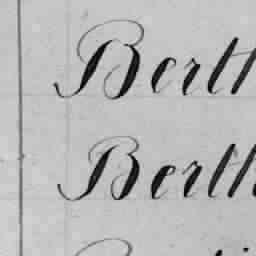 Bert
Berth